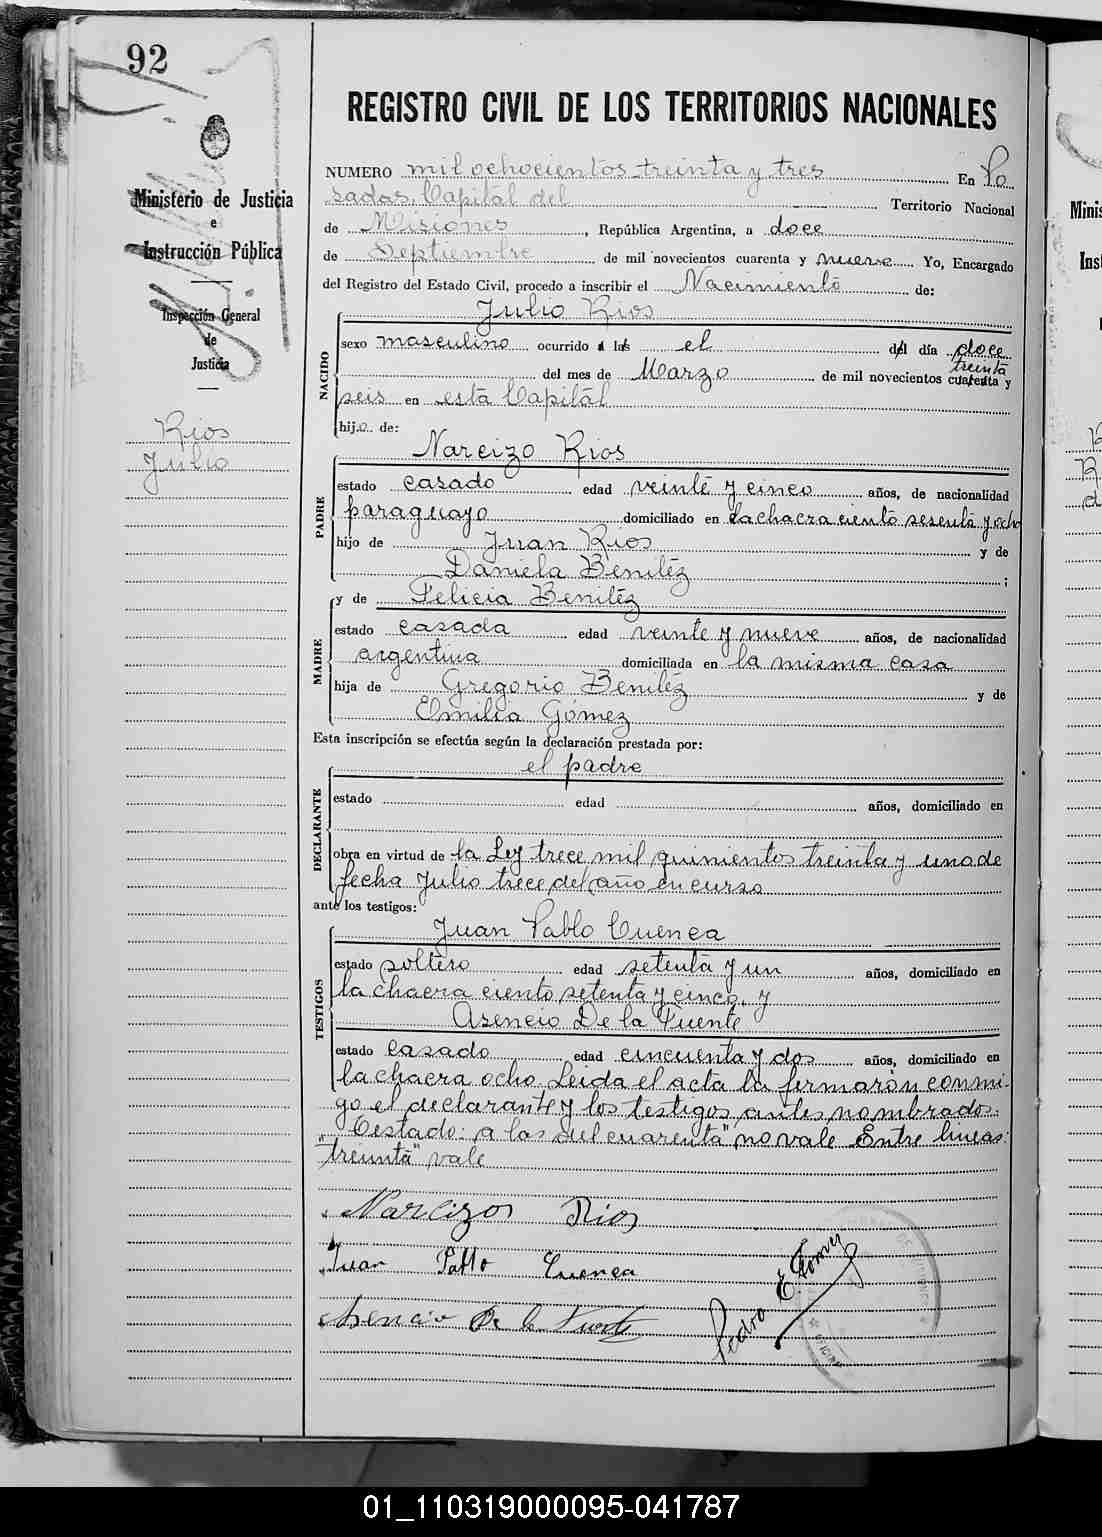 92
Ministerio de Justicia
e
Instrucción Pública
Inspección General
de
Justicia
Rios
Julio
REGISTRO CIVIL DE LOS TERRITORIOS NACIONALES
NUMERO mil ochocientos treinta y tres En Po
sadas, Capital del Territorio Nacional
de Misiones, República Argentina, a doce
de Septiembre de mil novecientos cuarenta y nueve Yo, Encargado
del Registro del Estado Civil, procedo a inscribir el Nacimiento de:
Julio Rios
NACIDO
sexo masculino ocurrido a las el del día doce
treinta
del mes de Marzo de mil novecientos cuarenta y
seis en esta Capital
hijo de:
Narcizo Rios
PADRE
estado casado edad veinte y cinco años, de nacionalidad
paraguayo domiciliado en la chacra ciento sesenta y ocho
hijo de Juan Rios y de
Daniela Benitéz ;
y de Felicia Benitéz
MADRE
estado casada edad veinte y nueve años, de nacionalidad
argentina domiciliada en la misma casa
hija de Gregorio Benitéz y de
Emilia Gómez
Esta inscripción se efectúa según la declaración prestada por:
el padre
DECLARANTE
estado edad años, domiciliado en
obra en virtud de la Ley trece mil quinientos treinta y uno de
fecha Julio trece del año en curso
ante los testigos:
Juan Pablo Cuenca
TESTIGOS
estado soltero edad setenta y un años, domiciliado en
la chacra ciento setenta y cinco, y
Asencio De la Fuente
estado casado edad cincuenta y dos años, domiciliado en
la chacra ocho. Leida el acta la firmarón conmi-
go el declarante y los testigos antes nombrados.
"Testado: a las del cuarenta" no vale. Entre lineas:
"treinta" vale
Narcizo Rios
Juan Pablo Cuenca
Asencio De la Fuente
Pedro E.
01_110319000095-041787